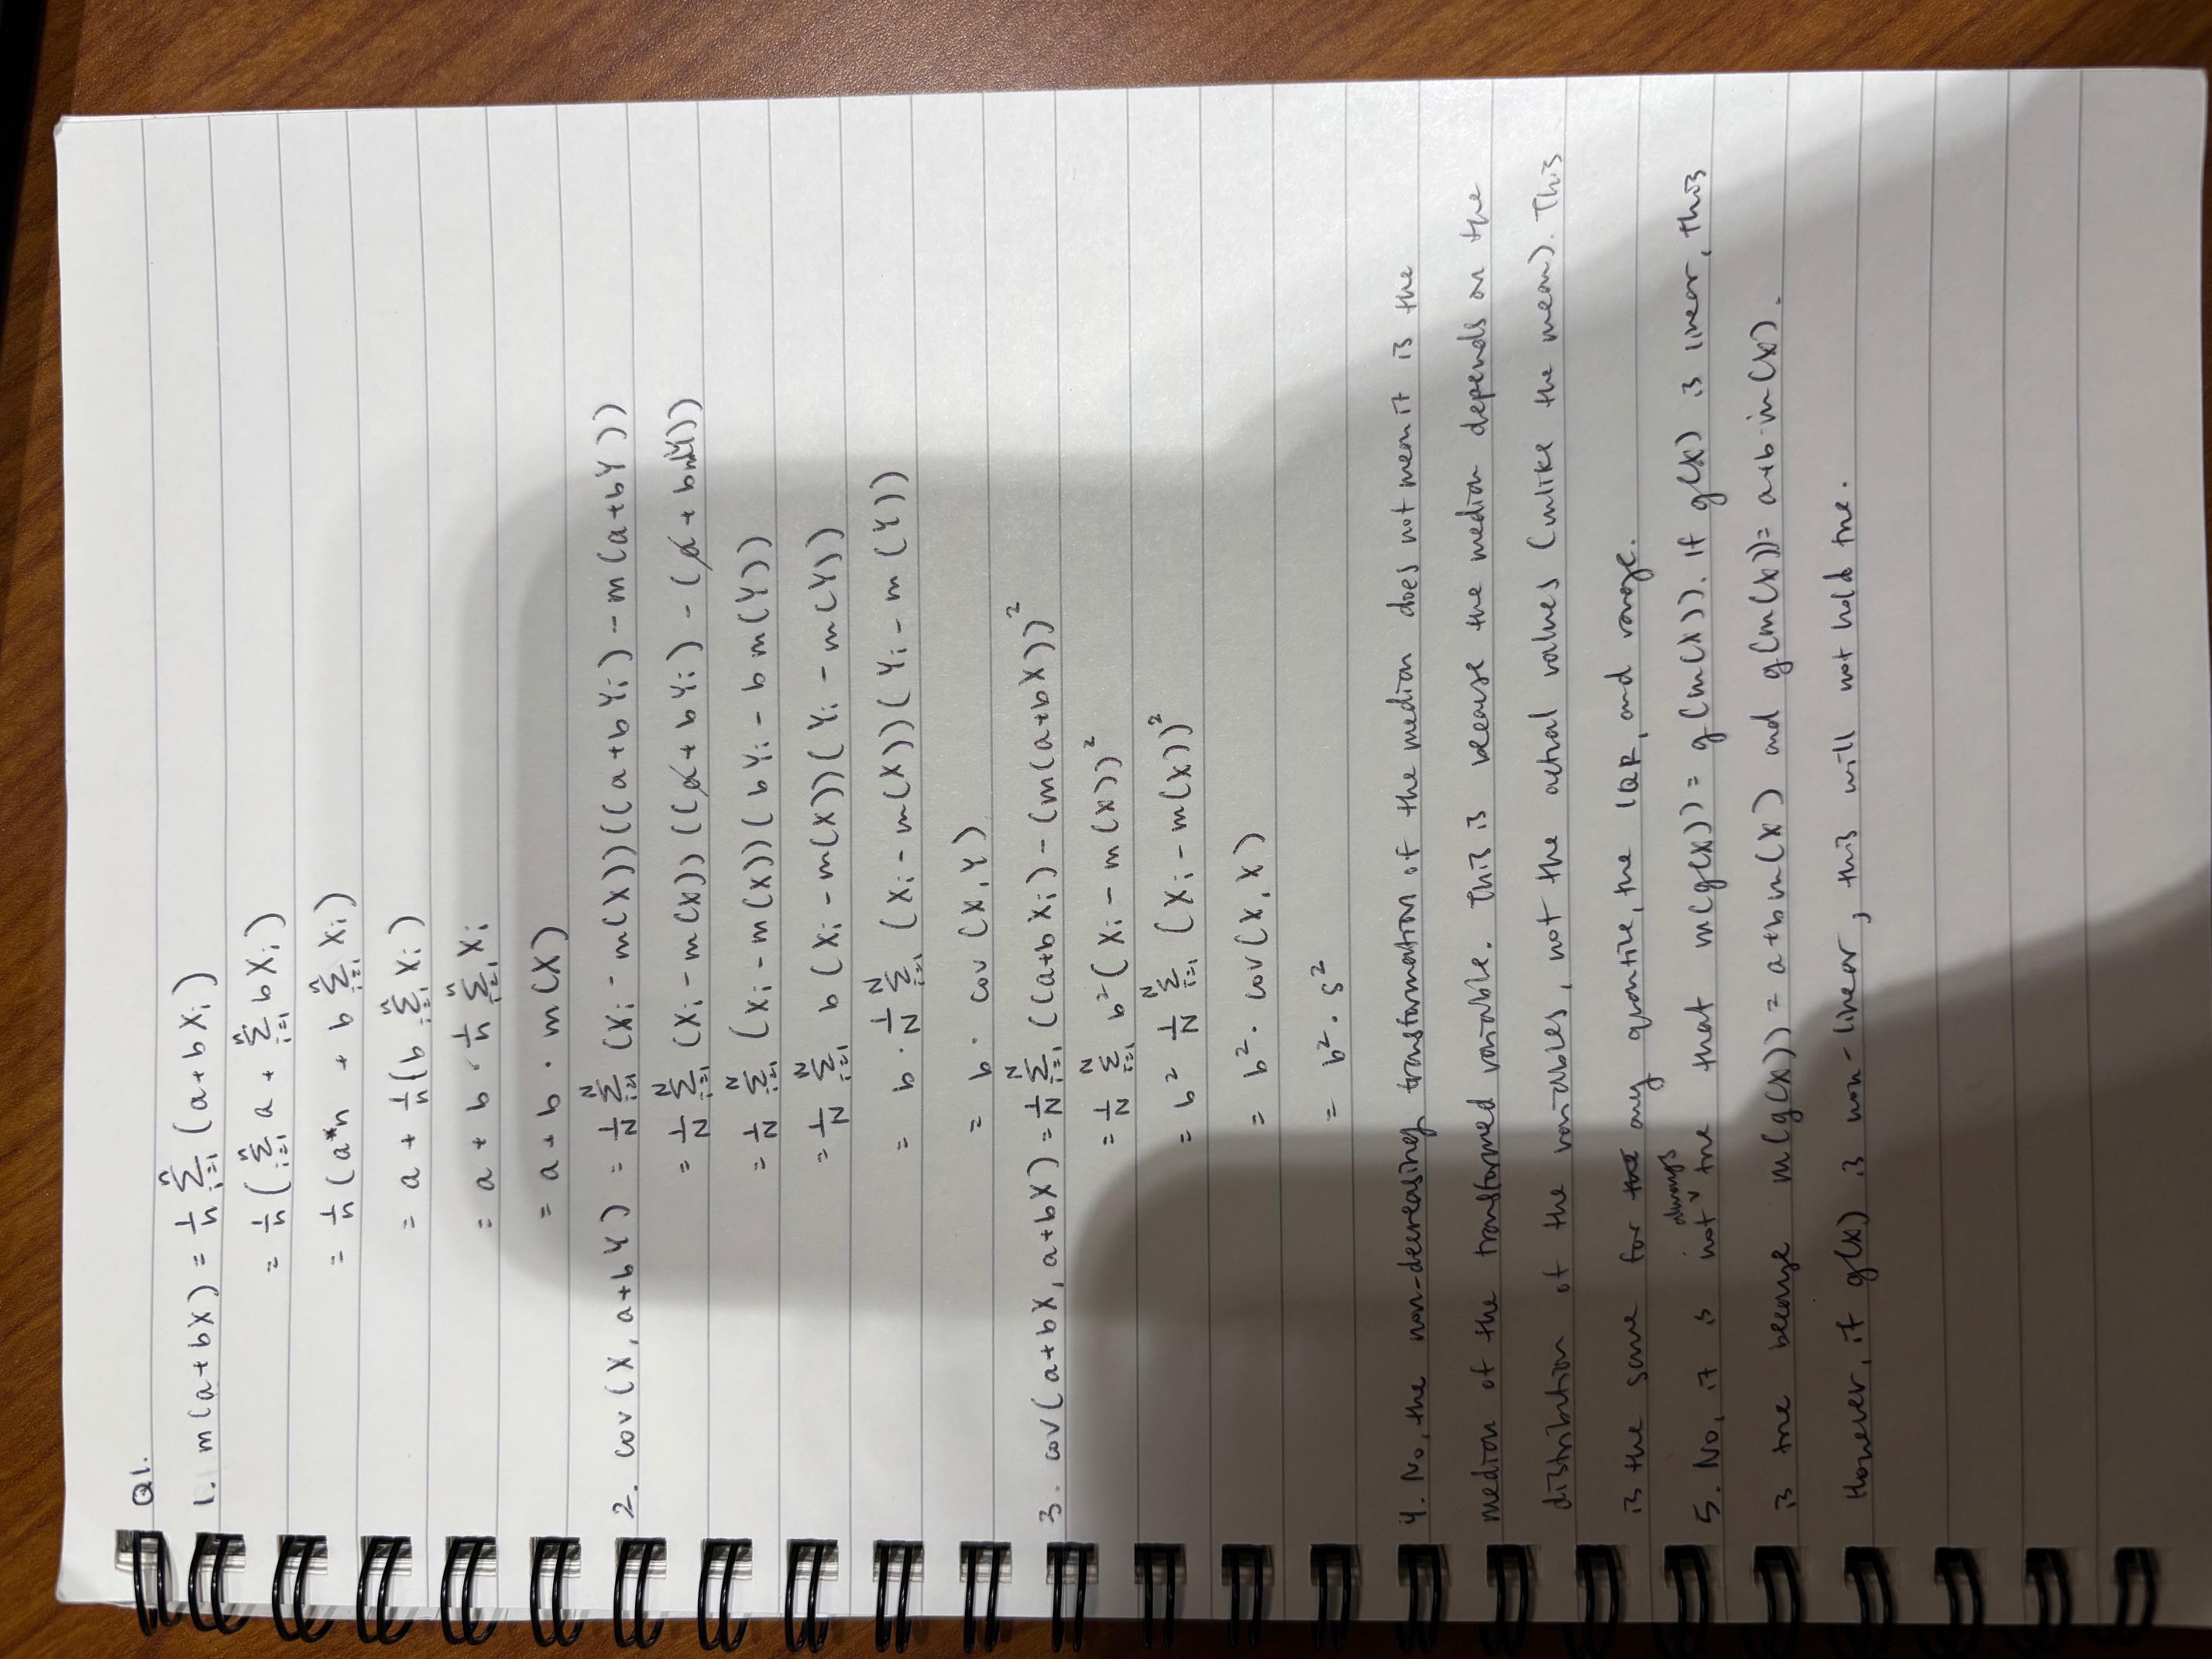 Q1.
1. m(a+bX) = 1/n Σ_{i=1}^{n} (a+bX_i)
= 1/n (Σ_{i=1}^{n} a + Σ_{i=1}^{n} bX_i)
= 1/n (a*n + b Σ_{i=1}^{n} X_i)
= a + 1/n (b Σ_{i=1}^{n} X_i)
= a + b · 1/n Σ_{i=1}^{n} X_i
= a + b · m(X)
2. cov(X, a+bY) = 1/N Σ_{i=1}^{N} (X_i - m(X))((a+bY_i) - m(a+bY))
= 1/N Σ_{i=1}^{N} (X_i - m(X))((a + bY_i) - (a + bm(Y))
= 1/N Σ_{i=1}^{N} (X_i - m(X))(bY_i - b m(Y))
= 1/N Σ_{i=1}^{N} b(X_i - m(X))(Y_i - m(Y))
= b · 1/N Σ_{i=1}^{N} (X_i - m(X))(Y_i - m(Y))
= b · cov(X,Y)
3. cov(a+bX, a+bX) = 1/N Σ_{i=1}^{N} ((a+bX_i) - (m(a+bX))²
= 1/N Σ_{i=1}^{N} b²(X_i - m(X))²
= b² 1/N Σ_{i=1}^{N} (X_i - m(X))²
= b² · cov(X,X)
= b² · s²
4. No, the non-decreasing transformation of the median does not mean it is the
median of the transformed variable. This is because the median depends on the
distribution of the variables, not the actual values (unlike the mean). This
is the same for the any quantile, the IQR, and range.
5. No, it is not always true that m(g(X)) = g(m(X)). If g(X) is linear, this
is true because m(g(X)) = a+bm(X) and g(m(X)) = a+b·m(X).
However, if g(X) is non-linear, this will not hold true.